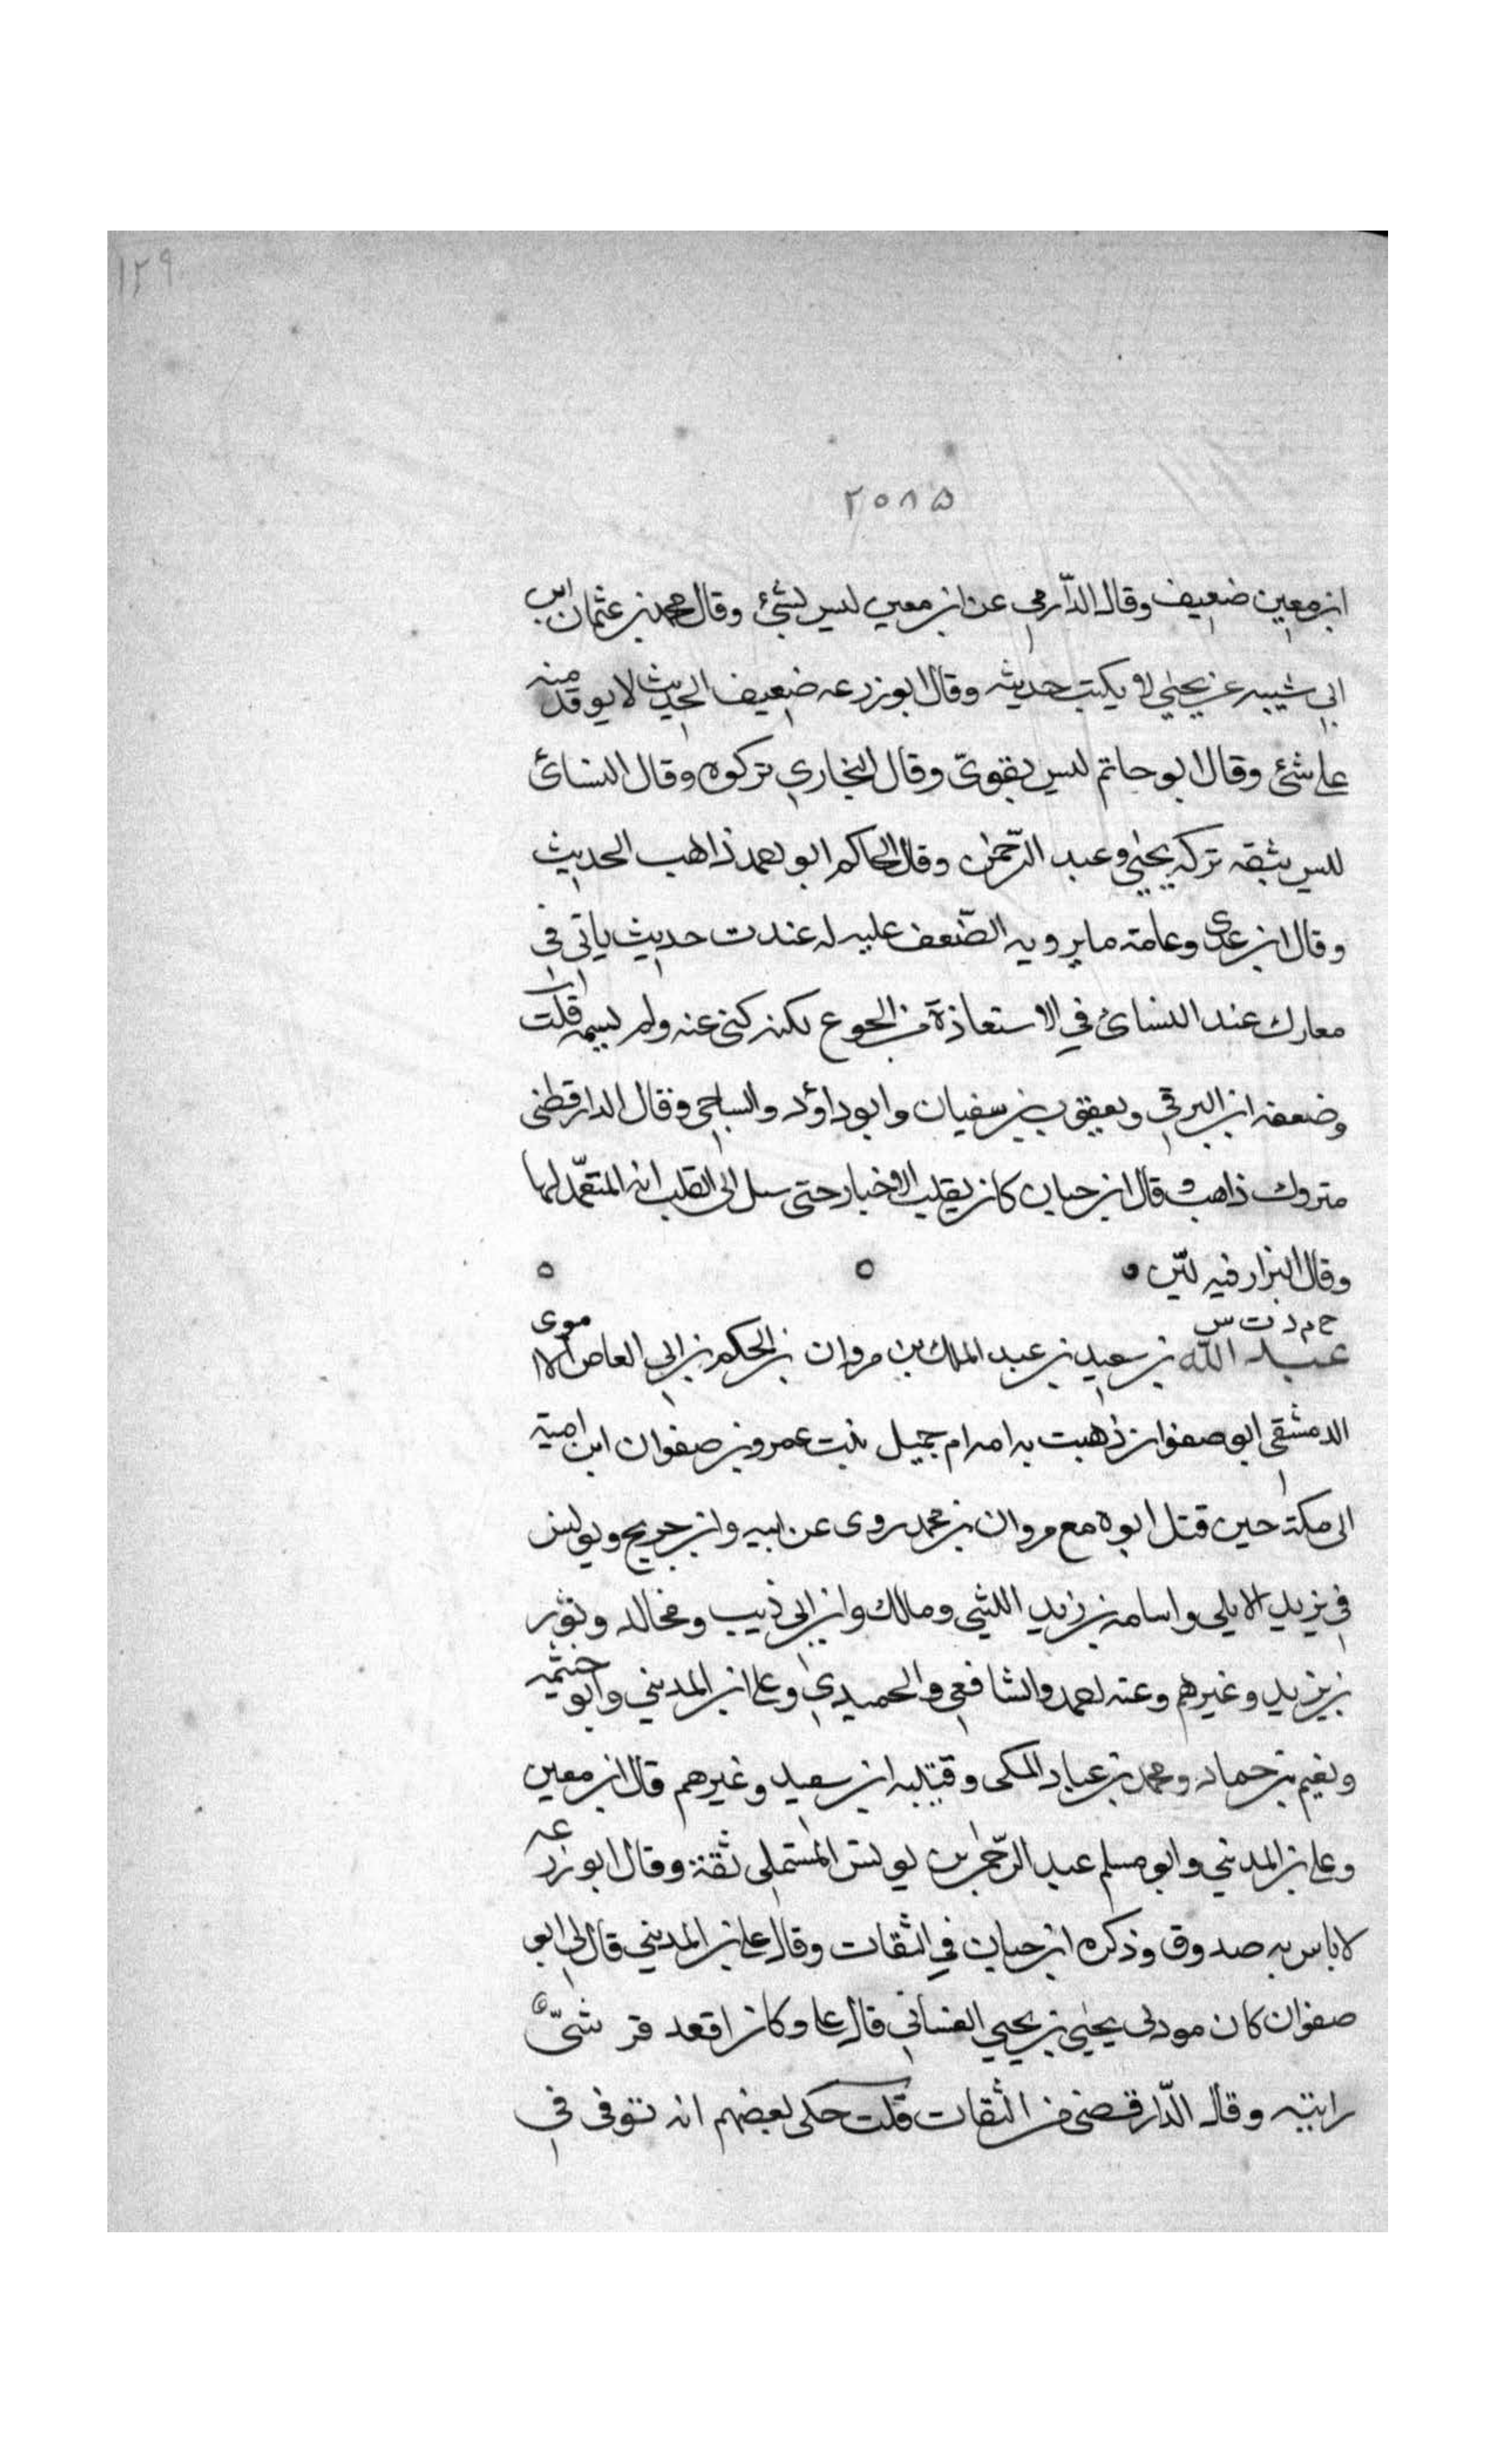 ١٢٩
٢٥٨٥
ابن معين ضعيف وقال الدّارمي عن ابن معين ليس بشئ وقال محمد بن عثمان ابن
ابي شيبه عن يحيي لا يكتب حديثه وقال ابو زرعه ضعيف الحديث لا يوقف منه
على شئ وقال ابو حاتم ليس بقويّ وقال البخاري تركوه وقال النسائ
ليس بثقه تركه يحيي وعبد الرّحمن وقال الحاكم ابو احمد ذاهب الحديث
وقال ابن عدى وعامة ما يرويه الضّعف عليه له عند ت حديث ياتي في
معارك عند النسائ في الاستعاذة من الجوع لكنه كنى عنه ولم يسمه قلت
وضعفه ابن البرقي ويعقوب بن سفيان وابو داؤد والساجي وقال الدارقطني
متروك ذاهب وقال ابن حبان كان يقلب الاخبار حتى الى القلب انه المتعمّد لها
وقال البزار فيه ليّن
خ م د ت س
عبد الله بن سعيد بن عبد الملك بن مروان بن الحكم بن ابي العاص الاموى
الدمشقي ابو صفوان ذهبت به امه ام جميل بنت عمرو بن صفوان ابن امية
الى مكة حين قتل ابوه مع مروان بن محمد روى عن ابيه وابن جريج ويونس
بن يزيد الايلي واسامه بن زيد الليثي ومالك وابن ابي ذيب ومخالد وثور
بن يزيد وغيرهم وعنه احمد والشافعي والحميدي وعلى ابن المديني وابو خثيمه
ونعيم بن حماد ومحمد بن عباد المكى وقتيبه ابن سعيد وغيرهم قال ابن معين
وعلى بن المديني وابو مسلم عبد الرّحمن بن يونس المستملي ثقة وقال ابو زرعه
لا باس به صدوق وذكره ابن حبان في الثقات وقال على بن المديني قال لي ابو
صفوان كان مودبى يحيي بن يحيي الغساني قال على وكان اقعد قرشيّ
رايته وقال الدّارقطني من الثقات قلت حكى بعضهم انه توفى في